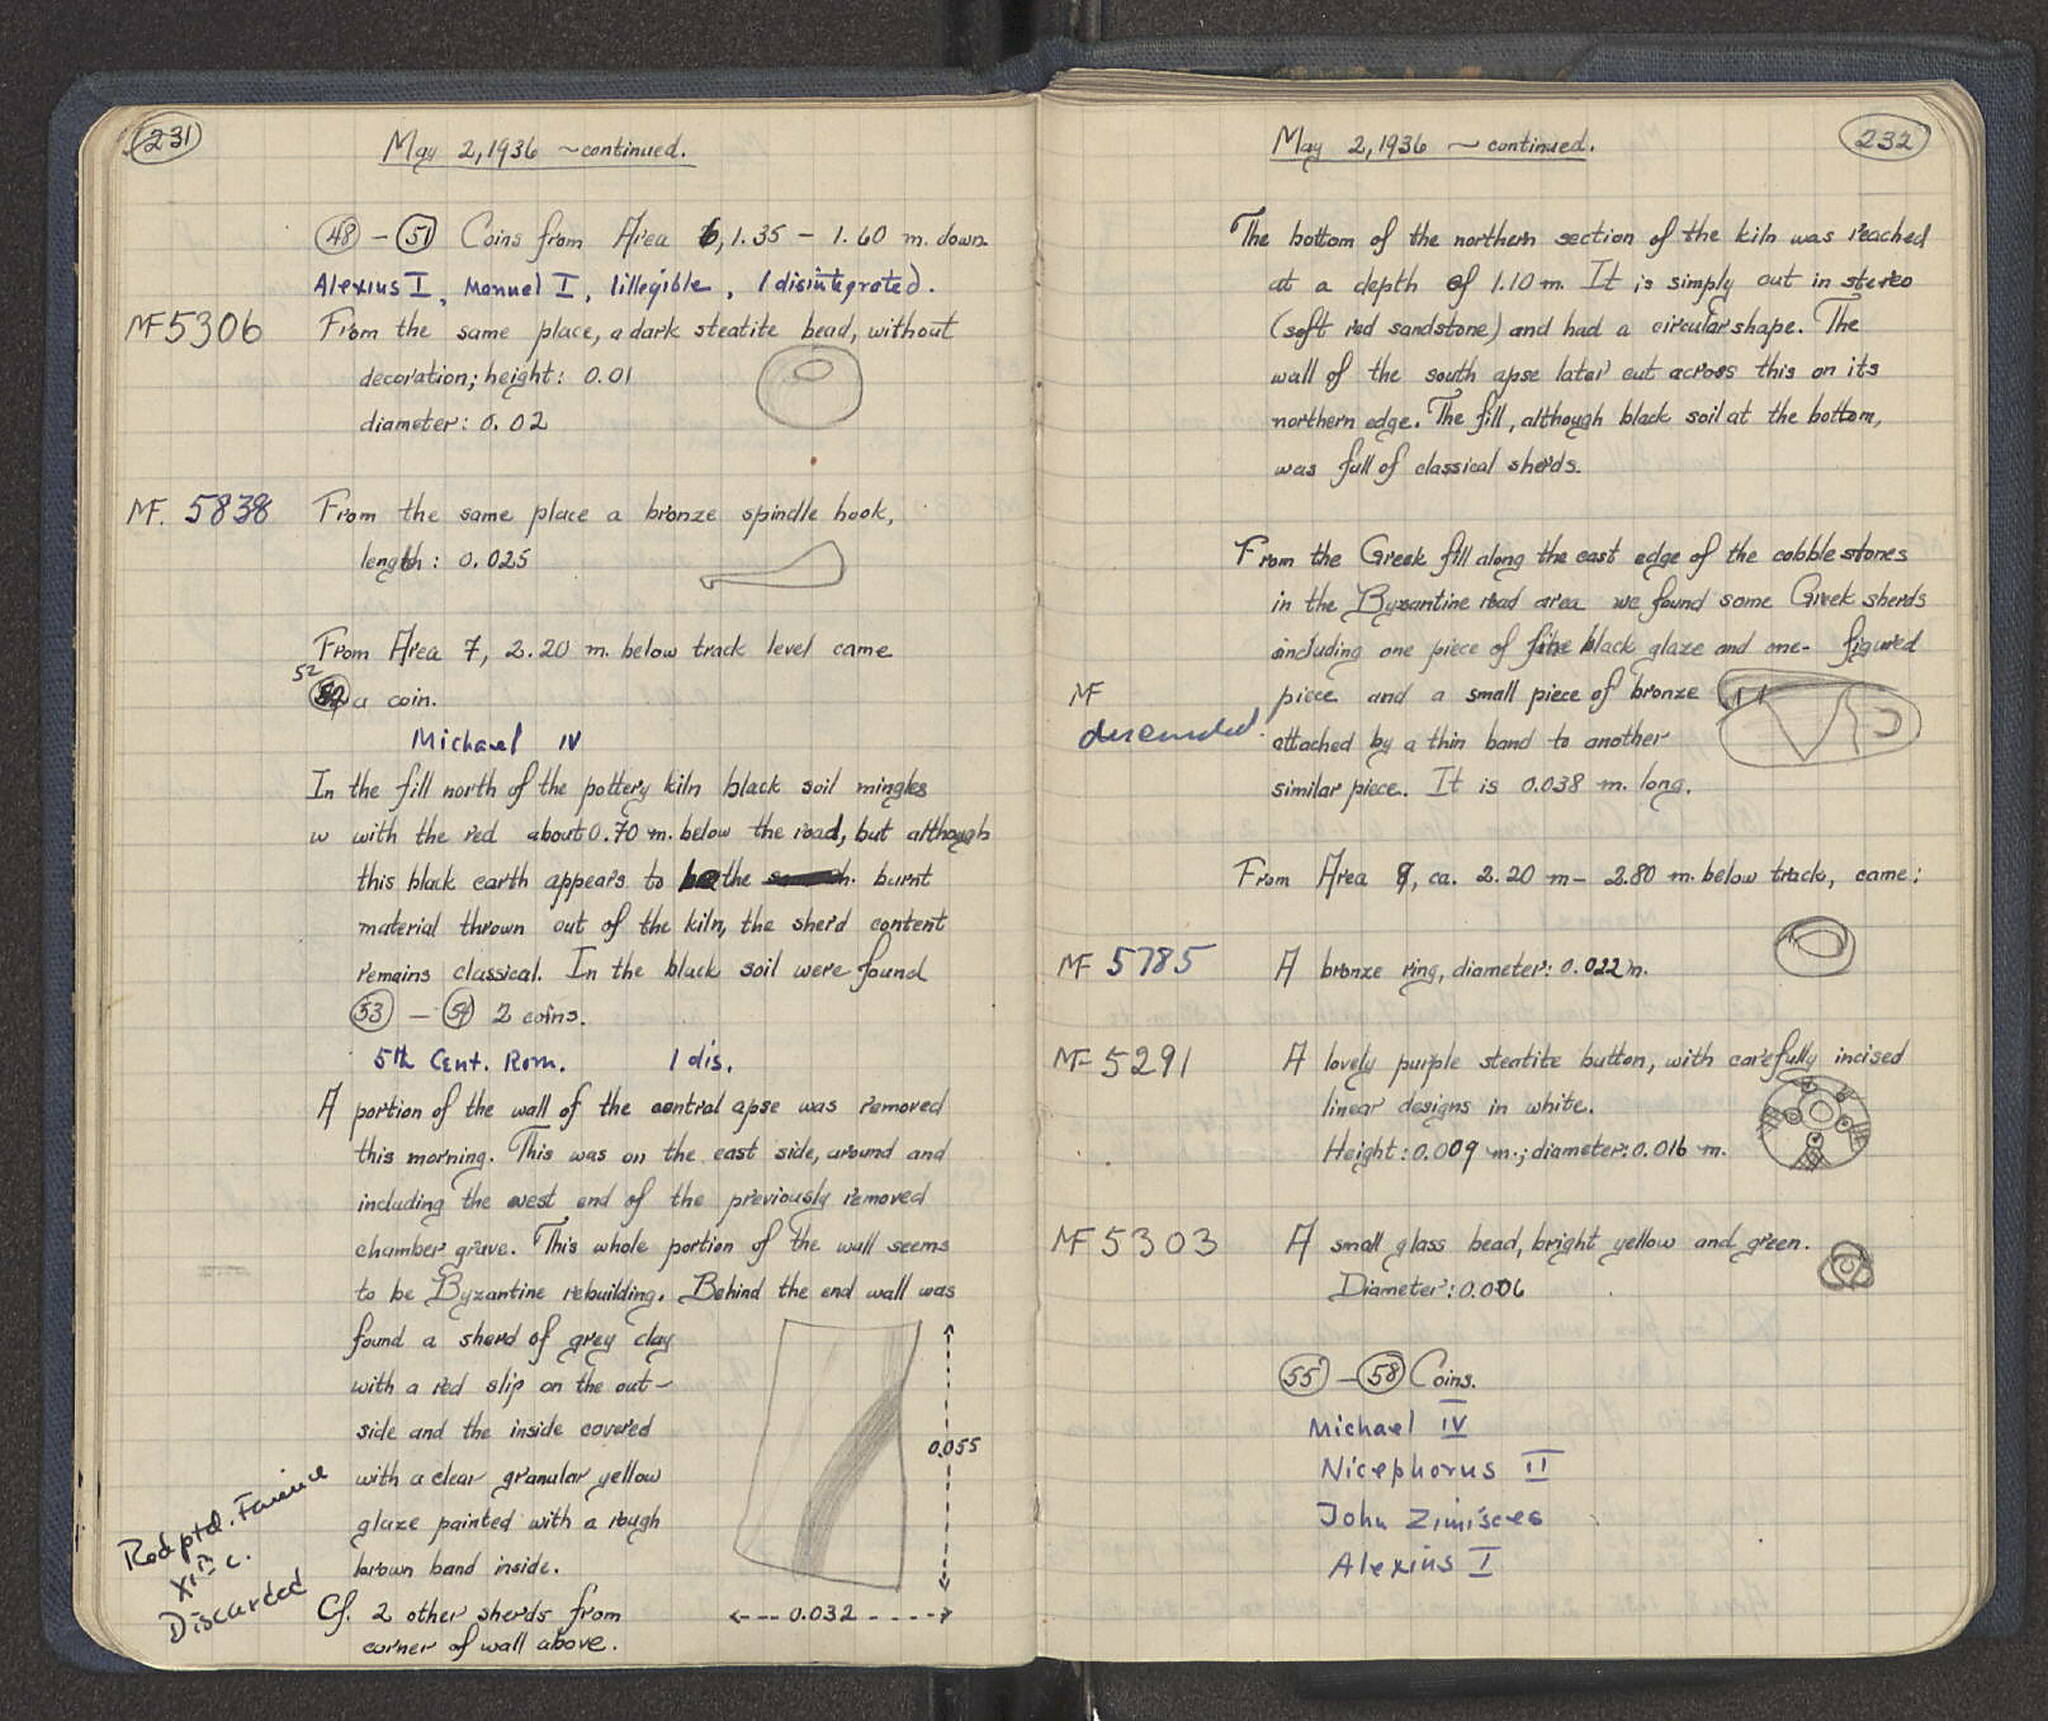 231
May 2, 1936 ~ continued.
48 - 51 Coins from Area 6, 1.35 - 1.60 m. down.
Alexius I, Manuel I, 1 illegible, 1 disintegrated.
MF 5306 From the same place, a dark steatite bead, without
decoration; height: 0.01
diameter: 0.02
MF. 5838 From the same place a bronze spindle hook,
length: 0.025
From Area 7, 2.20 m. below track level came
52
a coin.
Michael IV
In the fill north of the pottery kiln black soil mingles
w with the red about 0.70 m. below the road, but although
this black earth appears to be the burnt
material thrown out of the kiln, the sherd content
remains classical. In the black soil were found
53 - 54 2 coins.
5th Cent. Rom. 1 dis.
A portion of the wall of the central apse was removed
this morning. This was on the east side, around and
including the west end of the previously removed
chamber grave. This whole portion of the wall seems
to be Byzantine rebuilding. Behind the end wall was
found a sherd of grey clay
with a red slip on the out-
side and the inside covered
with a clear granular yellow
glaze painted with a rough
brown band inside.
Cf. 2 other sherds from
corner of wall above.
0.055
0.032
Red ptd.
XI th c.
Discarded
232
May 2, 1936 ~ continued.
The bottom of the northern section of the kiln was reached
at a depth of 1.10 m. It is simply cut in stereo
(soft red sandstone) and had a circular shape. The
wall of the south apse later cut across this on its
northern edge. The fill, although black soil at the bottom,
was full of classical sherds.
From the Greek fill along the east edge of the cobble stones
in the Byzantine road area we found some Greek sherds
including one piece of fine black glaze and one figured
MF piece and a small piece of bronze
discarded. attached by a thin band to another
similar piece. It is 0.038 m. long.
From Area 9, ca. 2.20 m - 2.80 m. below track, came:
MF 5785 A bronze ring, diameter: 0.022 m.
MF 5291 A lovely purple steatite button, with carefully incised
linear designs in white.
Height: 0.009 m.; diameter: 0.016 m.
MF 5303 A small glass bead, bright yellow and green.
Diameter: 0.006
55 - 58 Coins.
Michael IV
Nicephorus II
John Zimisces
Alexius I